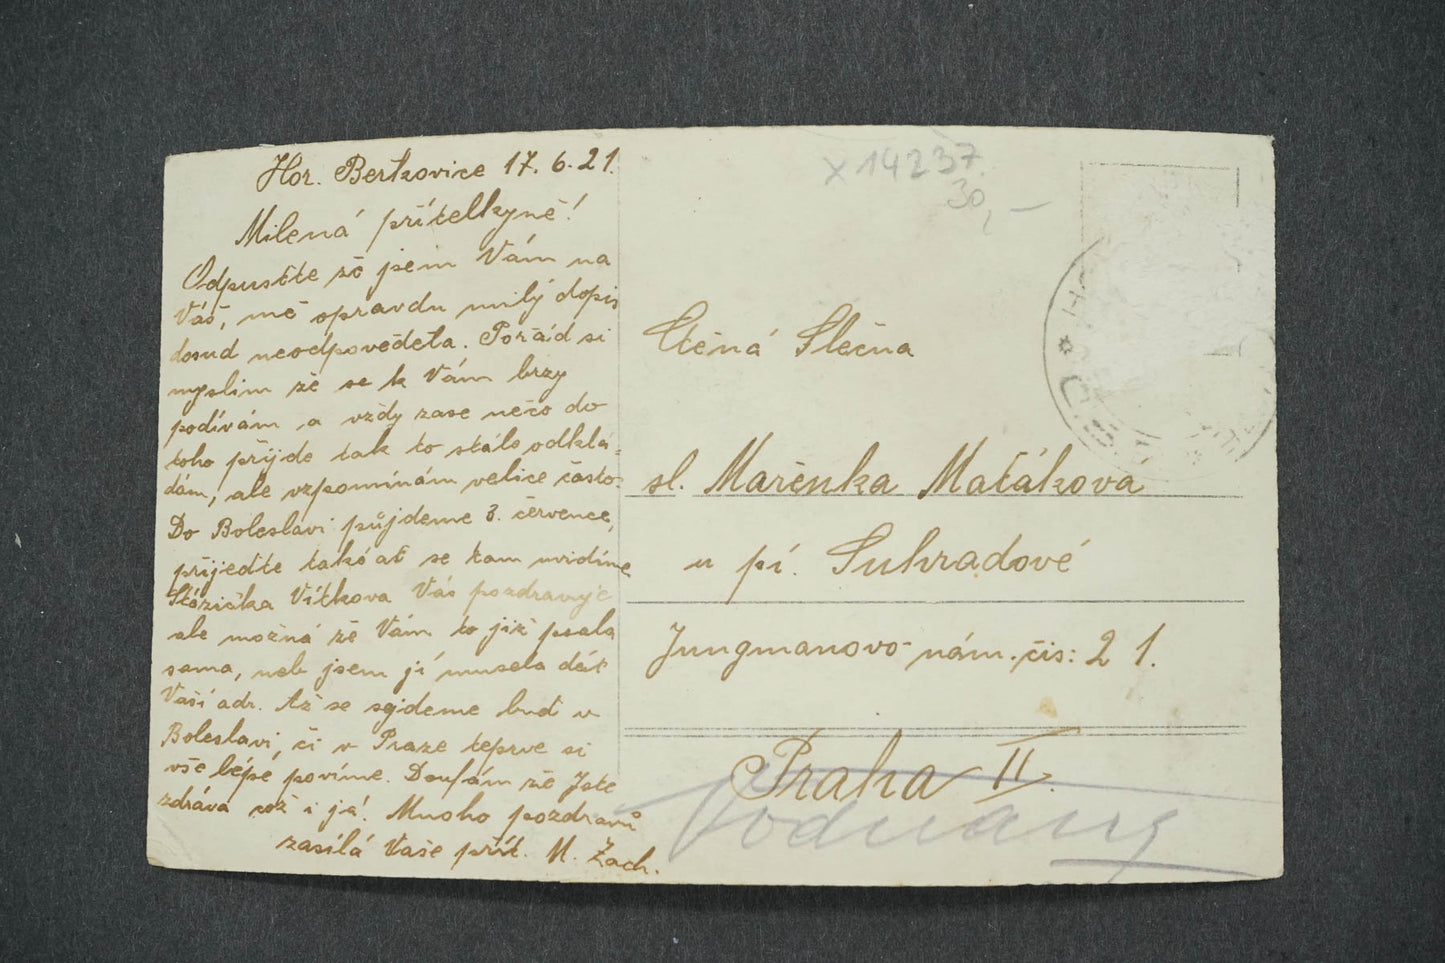 Hor. Beřkovice 17. 6. 21.
Milená přítelkyně!
Odpusťte žě jsem Vám na
Váš, mě opravdu milý dopis
dosud neodpověděla. Pořád si
myslim žě se k Vám brzy
podívám a vždy zase něco do
toho příjde tak to stále odklá-
dám, ale vzpomínám velice často.
Do Boleslavi půjdeme 3. července,
přijeďte také ať se tam uvidíme
Vítkova Vás pozdravuje
ale možná žě Vám to již psala
sama, neb jsem jí musela dát
Vaší adr. Až se sejdeme buď v
Boleslavi, či v Praze teprve si
vše lépe povíme. Doufám žě Jste
zdráva což i já! Mnoho pozdravů
zasílá Vaše přít. M. Zach.
X 14237.
30,—
Ctěná Slečna
sl. Mařenka Maťáková
u pí. Suhradové
Jungmanovo nám. čis: 21.
Praha II.
Vodňany